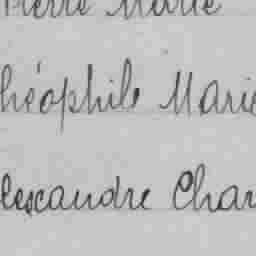 Pierre Marie
héophile Marie
lescandre Char